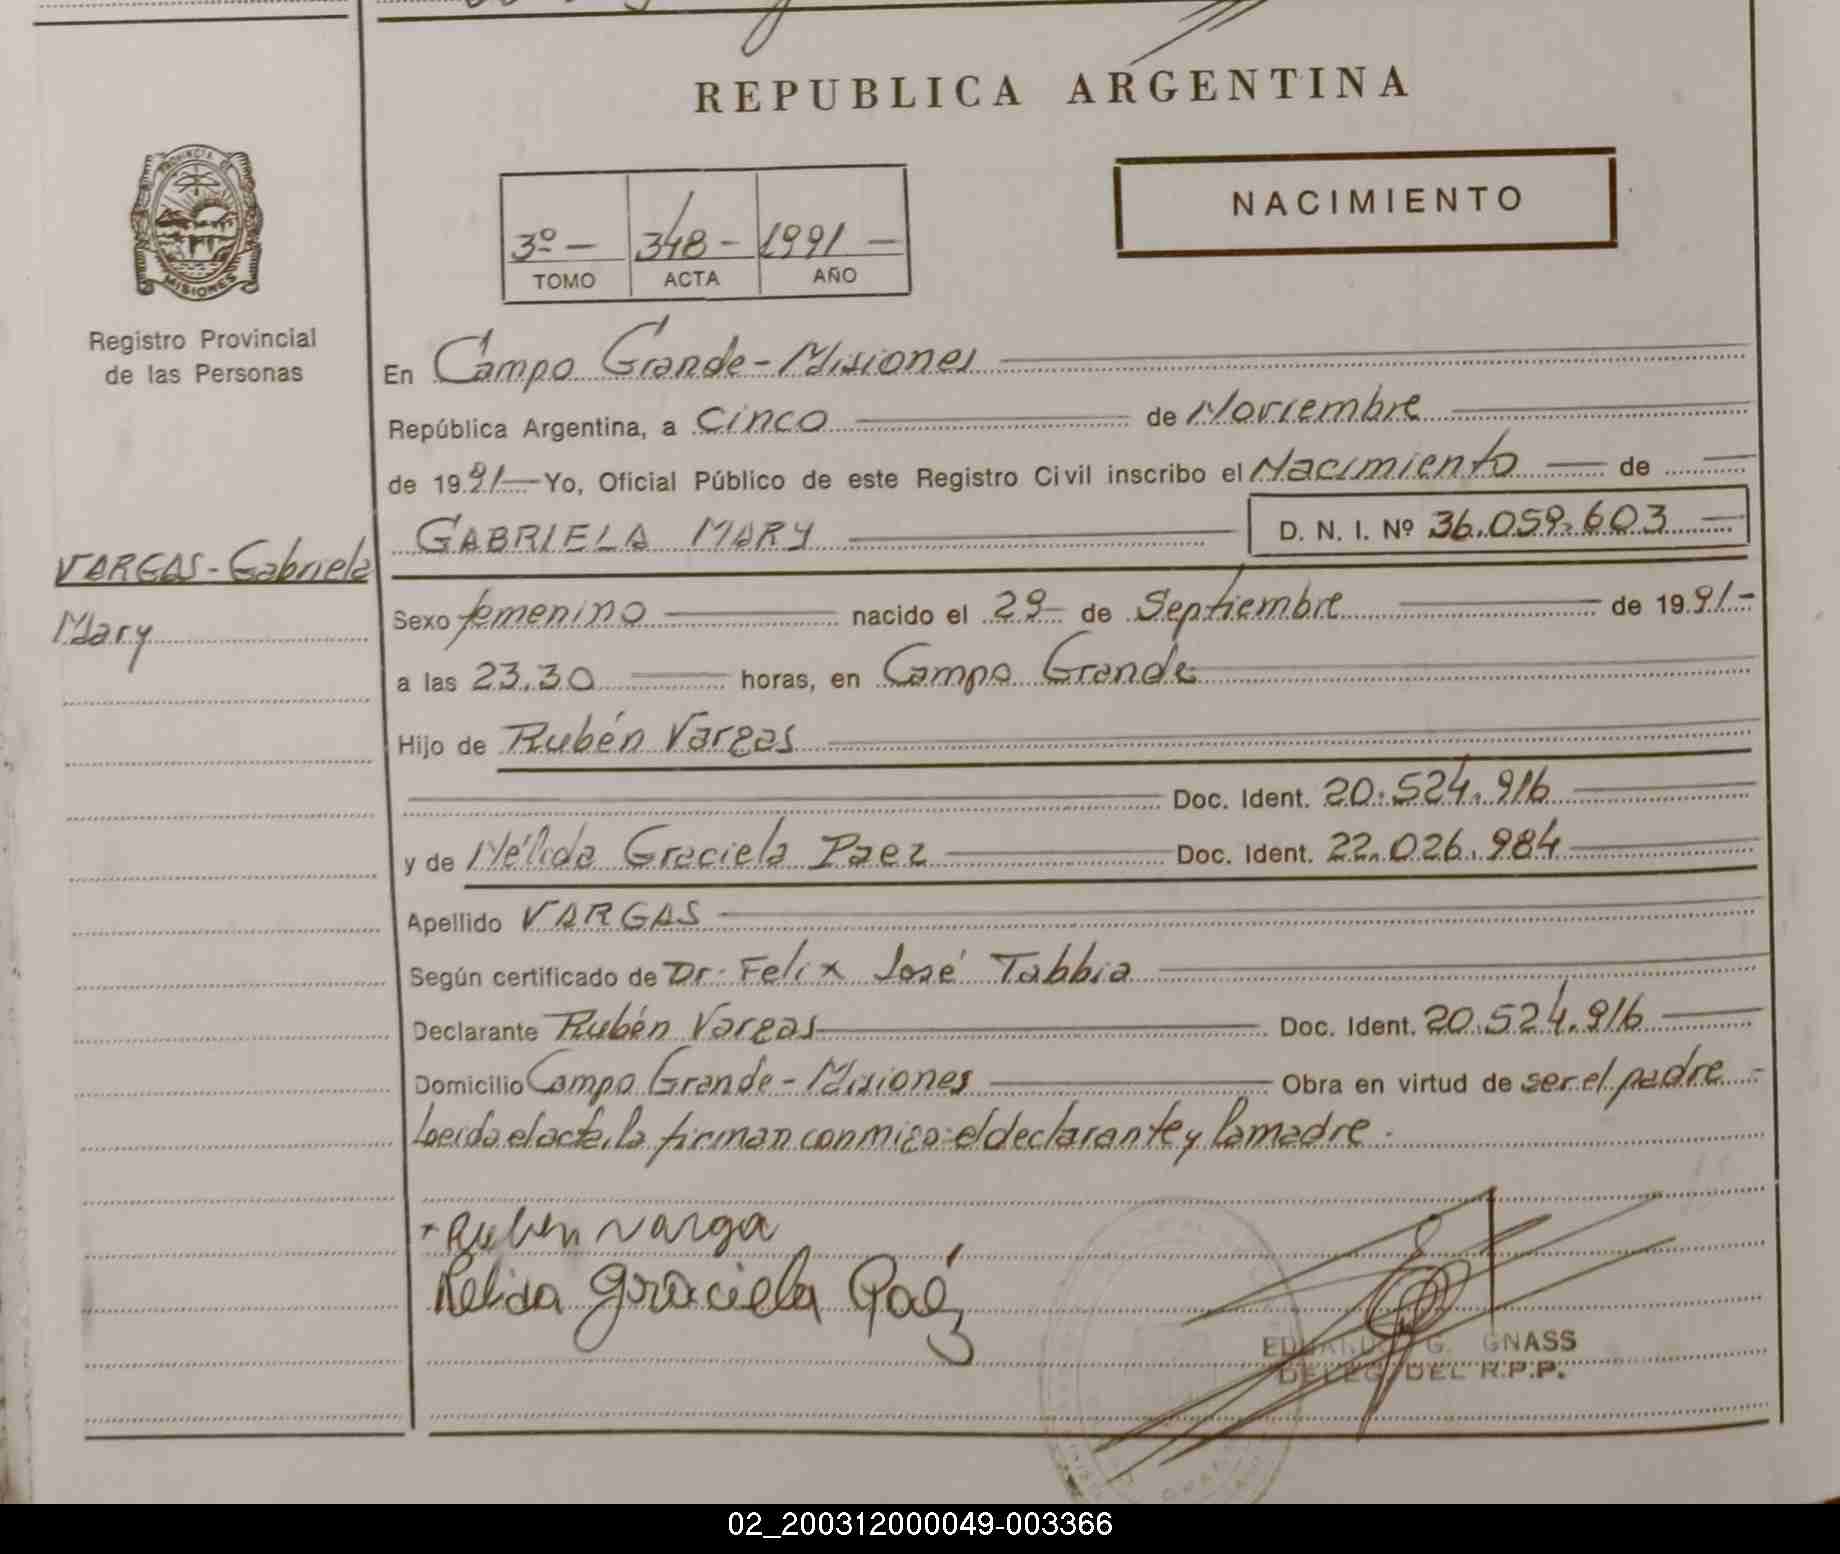 REPUBLICA ARGENTINA
PROVINCIA DE
MISIONES
Registro Provincial
de las Personas
NACIMIENTO
3º - 348 - 1991 -
TOMO ACTA AÑO
En Campo Grande - Misiones
República Argentina, a cinco de Noviembre
de 1991 Yo, Oficial Público de este Registro Civil inscribo el Nacimiento de
GABRIELA MARY D. N. I. Nº 36.059.603
VARGAS - Gabriela
Mary
Sexo femenino nacido el 29 de Septiembre de 1991 -
a las 23.30 horas, en Campo Grande
Hijo de Rubén Vargas
Doc. Ident. 20.524.916
y de Nélida Graciela Paez Doc. Ident. 22.026.984
Apellido VARGAS
Según certificado de Dr. Felix José Tabbia
Declarante Rubén Vargas Doc. Ident. 20.524.916
Domicilio Campo Grande - Misiones Obra en virtud de ser el padre -
Leída el acta, la firman conmigo: el declarante y la madre.
Ruben Varga
Nelida Graciela Paéz
EDUARDO G. GNASS
DELEG. DEL R.P.P.
02_200312000049-003366